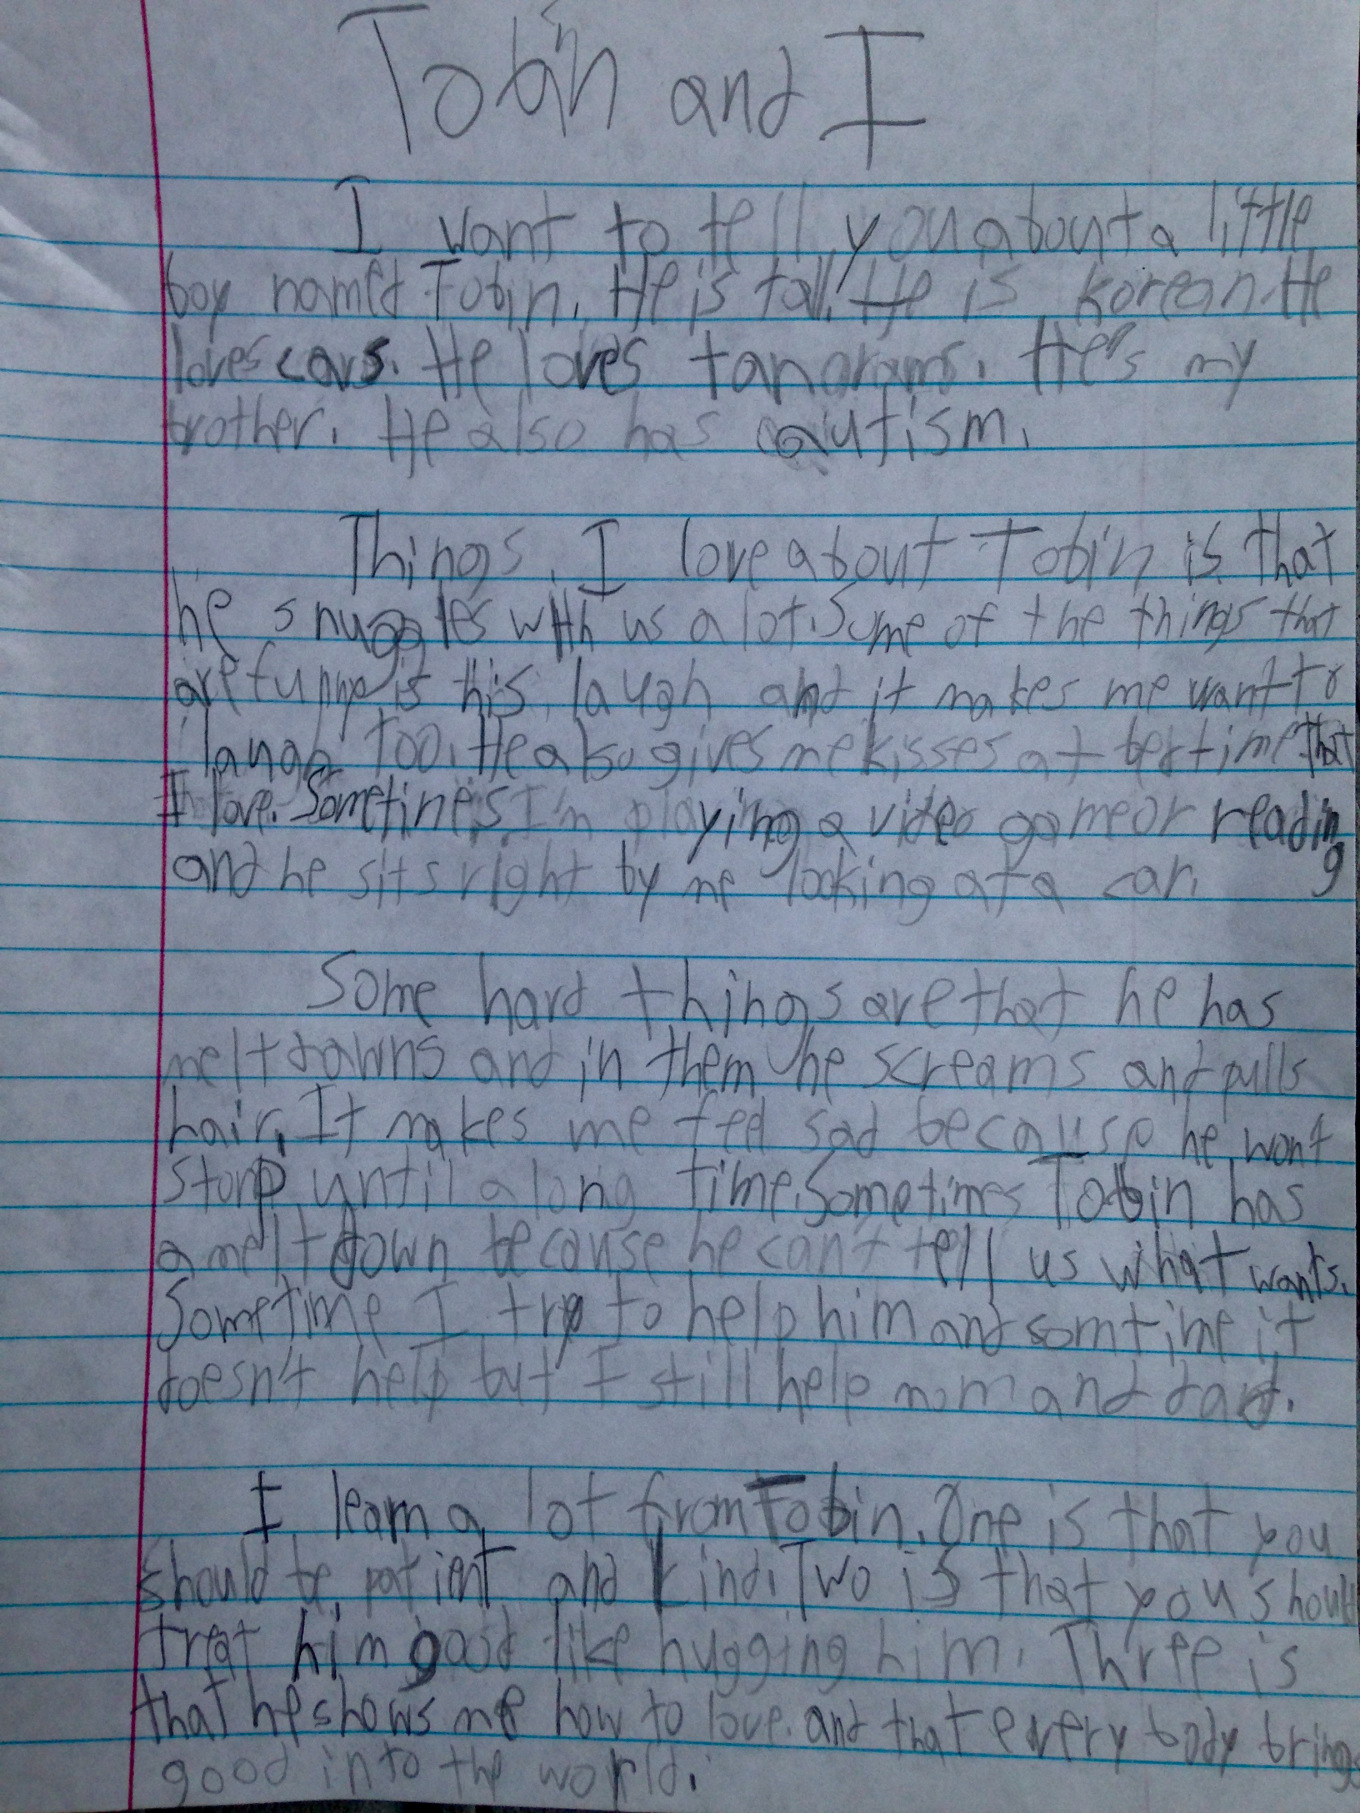 Tobin and I
I want to tell you about a little
boy named Tobin. He is tall. He is Korean. He
loves cars. He loves tangrams. He's my
brother. He also has autism.
Things I love about Tobin is that
he snuggles with us a lot. Some of the things that
are funny is his laugh and it makes me want to
laugh too. He also gives me kisses at bedtime that
I love. Sometimes I'm playing a video game or reading
and he sits right by me looking at a car.
Some hard things are that he has
meltdowns and in them he screams and pulls
hair. It makes me feel sad because he wont
stop until a long time. Sometimes Tobin has
a meltdown because he can't tell us what wants.
Sometime I try to help him and somtime it
doesn't help but I still help mom and dad.
I learn a lot from Tobin. One is that you
should be patient and kind. Two is that you should
treat him good like hugging him. Three is
that he shows me how to love. and that every body brings
good into the world.